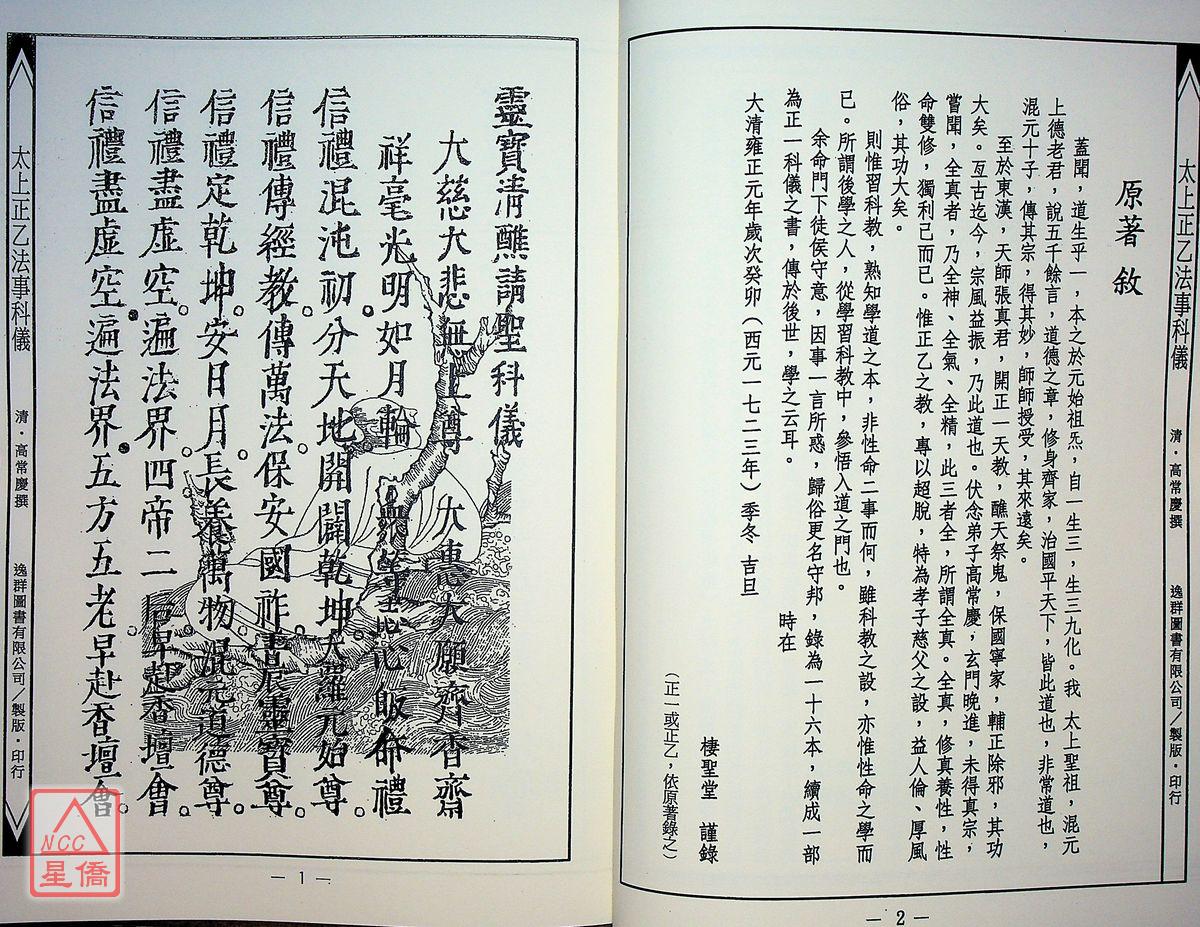 太上正乙法事科儀
清·高常慶撰
逸群圖書有限公司／製版·印行
原著敘
蓋聞，道生乎一，本之於元始祖炁，自一生三，生三九化。我 太上聖祖，混元
上德老君，說五千餘言，道德之章，修身齊家，治國平天下，皆此道也，非常道也，
混元十子，傳其宗，得其妙，師師授受，其來遠矣。
至於東漢，天師張真君，開正一天教，醮天祭鬼，保國寧家，輔正除邪，其功
大矣。亙古迄今，宗風益振，乃此道也。伏念弟子高常慶，玄門晚進，未得真宗，
嘗聞，全真者，乃全神、全氣、全精，此三者全，所謂全真。全真，修真養性，性
命雙修，獨利己而已。惟正乙之教，專以超脫，特為孝子慈父之設，益人倫、厚風
俗，其功大矣。
則惟習科教，熟知學道之本，非性命二事而何，雖科教之設，亦惟性命之學而
已。所謂後學之人，從學習科教中，參悟入道之門也。
余命門下徒侯守意，因事一言所惑，歸俗更名守邦，錄為一十六本，續成一部
為正一科儀之書，傳於後世，學之云耳。
時在
大清雍正元年歲次癸卯（西元一七二三年）季冬 吉旦
棲聖堂 謹錄
（正一或正乙，依原著錄之）
— 2 —
靈寶清醮請聖科儀
大慈大悲無上尊 大惠大願齊香齋
祥毫光明如月輪 命禮
信禮混沌初分天地開闢乾坤大羅元始尊
信禮傳經教傳萬法保安國祚書尼靈寶尊
信禮定乾坤安日月長養萬物混元道德尊
信禮盡虛空遍法界四帝二后早赴香壇會
信禮盡虛空遍法界五方五老早赴香壇會
太上正乙法事科儀
清·高常慶撰
逸群圖書有限公司／製版·印行
— 1 —
NCC
星僑